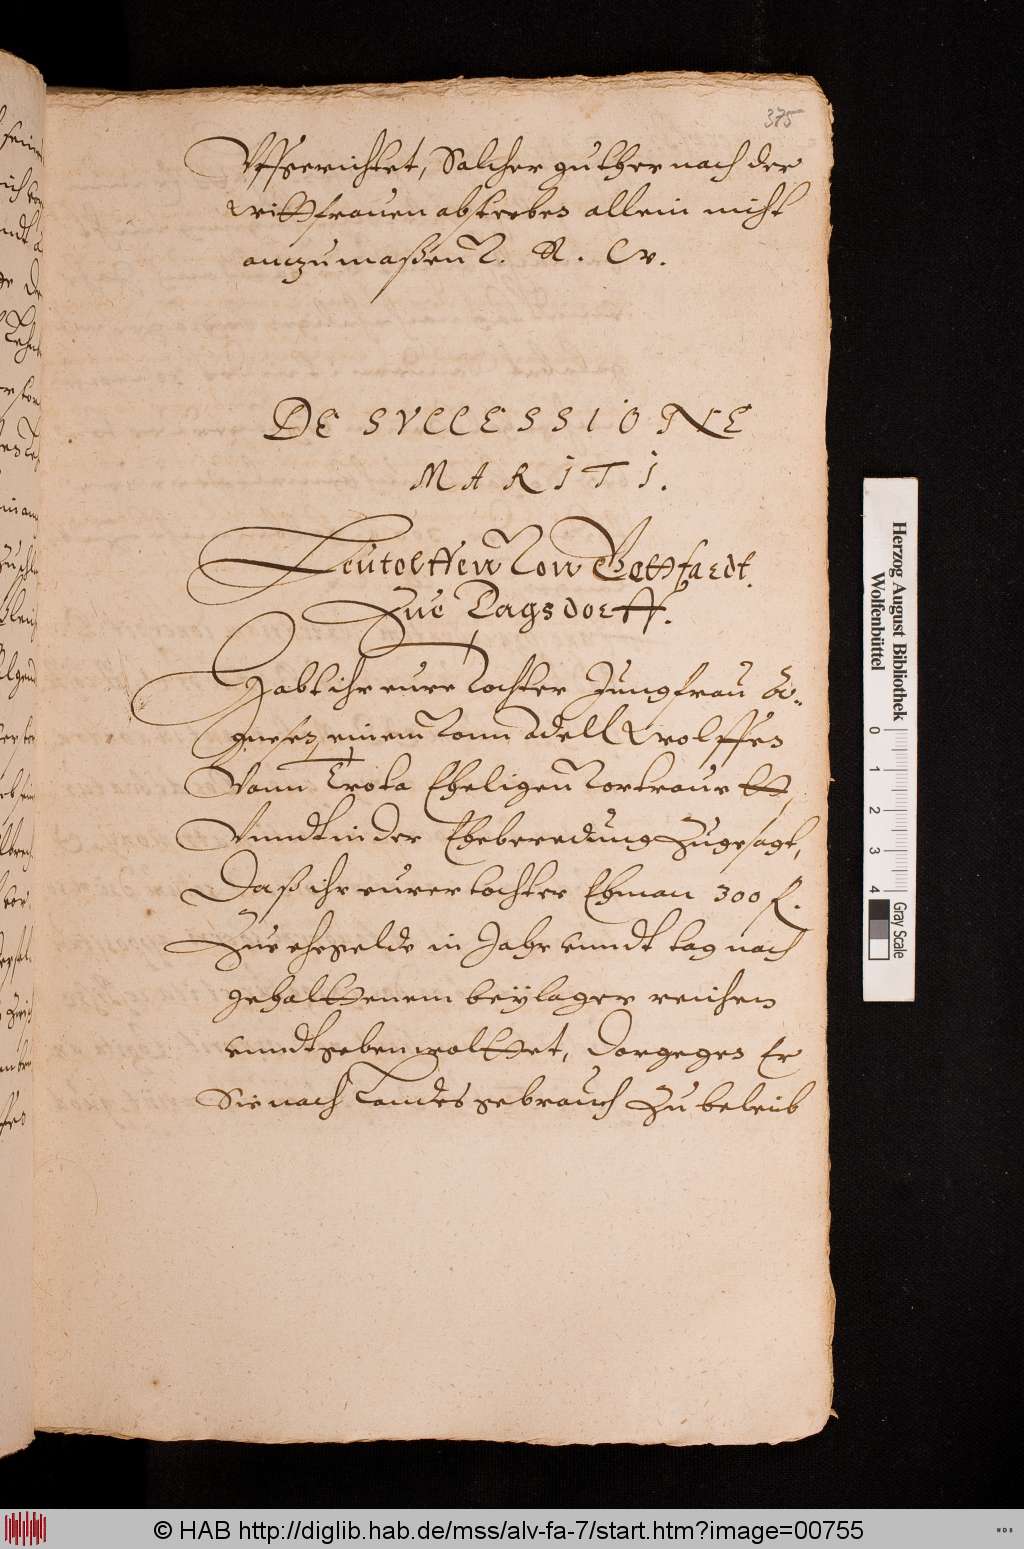 375
Uffgerichtet, Solcher guther nach der
wittfrauen absterben allein nicht
anzumaßenn. V. R. W.
DE SVCCESSIONE
MARITI.
Leutolffenn von
Zue Dagsdorff.
Habt ihr eure Tochter Jungfrau A-
gnesen, einem vom adell Wolffen
Vonn Trota Eheligen vortrauett,
Vnndt in der Eheberedung Zugesagt,
Daß ihr eurer tochter Ehman 300 f.
Zue ehegelde in Jahr vnndt tag nach
gehalttenem beÿlager reichen
vnndt geben wolttet, Dargegen Er
Sie nach Landes gebrauch Zu beleib
Herzog August Bibliothek
Wolfenbüttel
0 1 2 3 4
Gray Scale
© HAB http://diglib.hab.de/mss/alv-fa-7/start.htm?image=00755